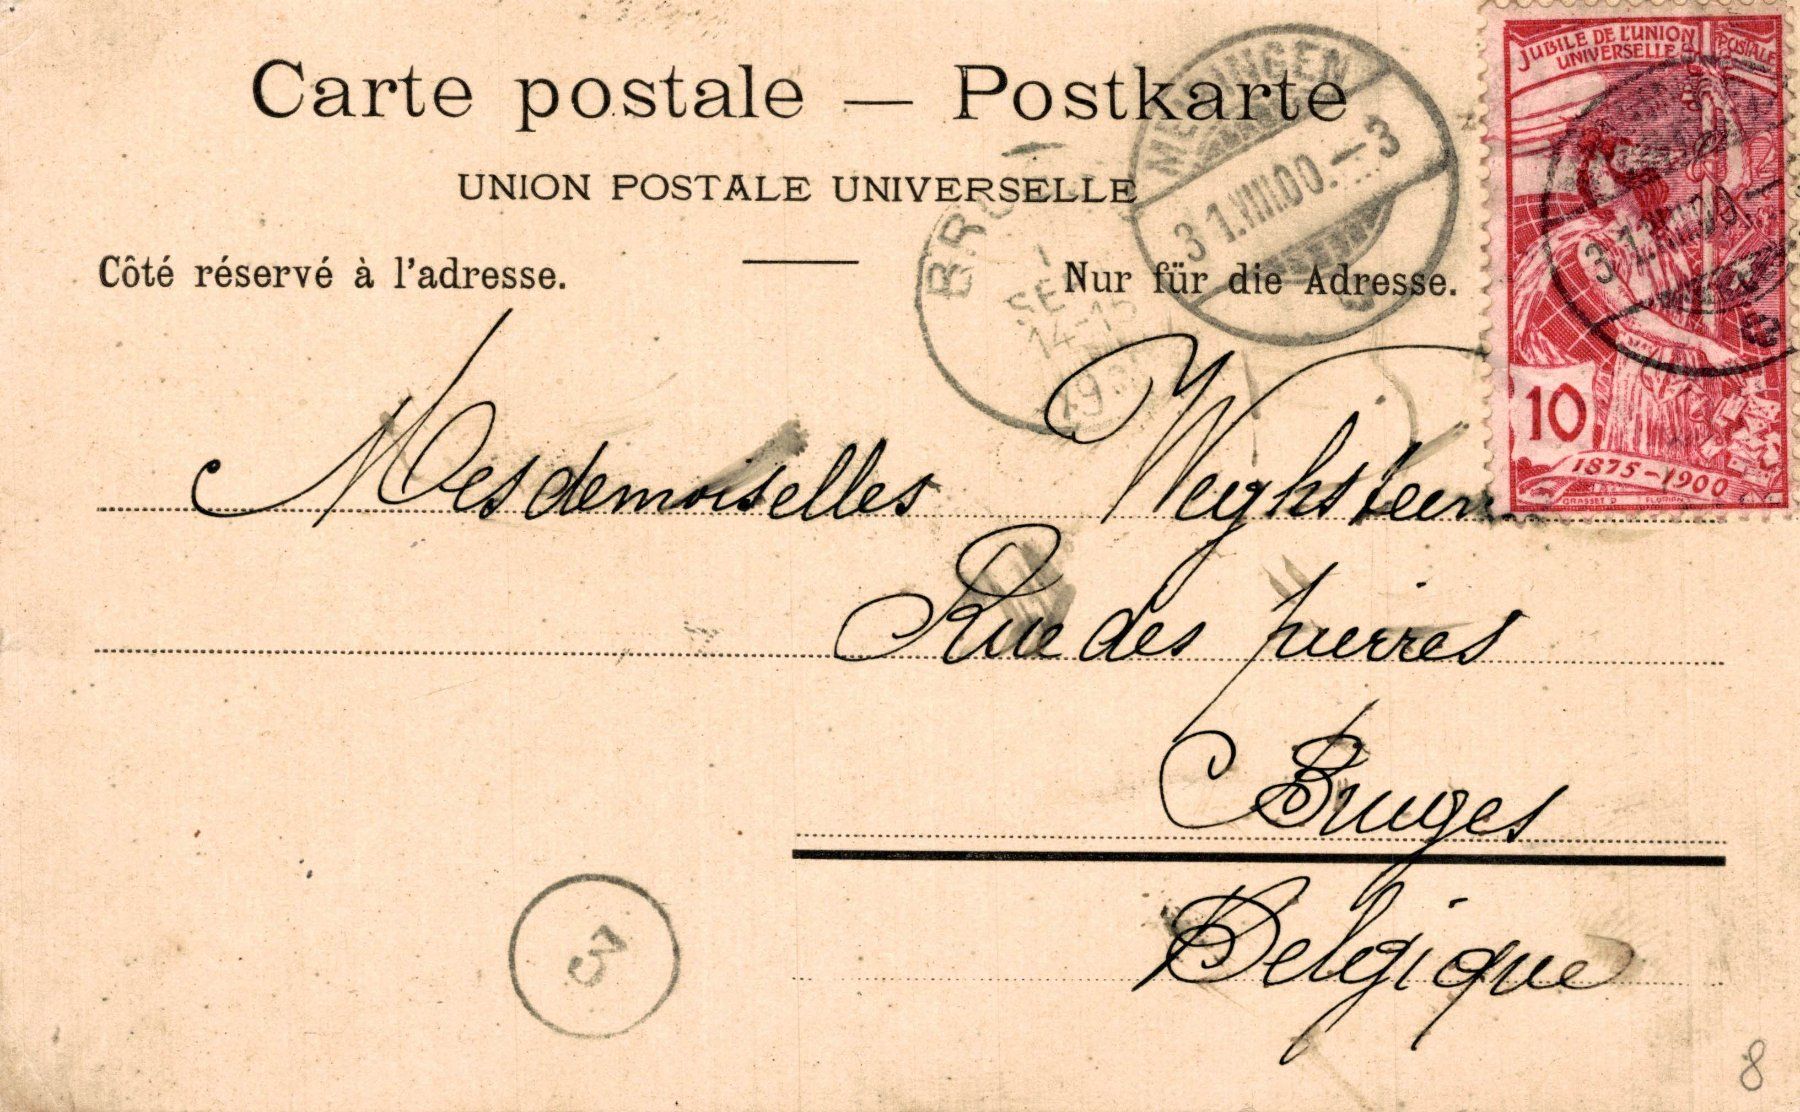 Carte postale — Postkarte
UNION POSTALE UNIVERSELLE
Côté réservé à l'adresse.
Nur für die Adresse.
JUBILÉ DE L'UNION POSTALE
UNIVERSELLE
10
1875-1900
GRASSET D. FLORIAN
MEIRINGEN
31.VIII.00.-3
31.VIII.00.-
SE
14-15
Mesdemoiselles Weghsteen
Rue des pierres
Bruges
Belgique
3
8